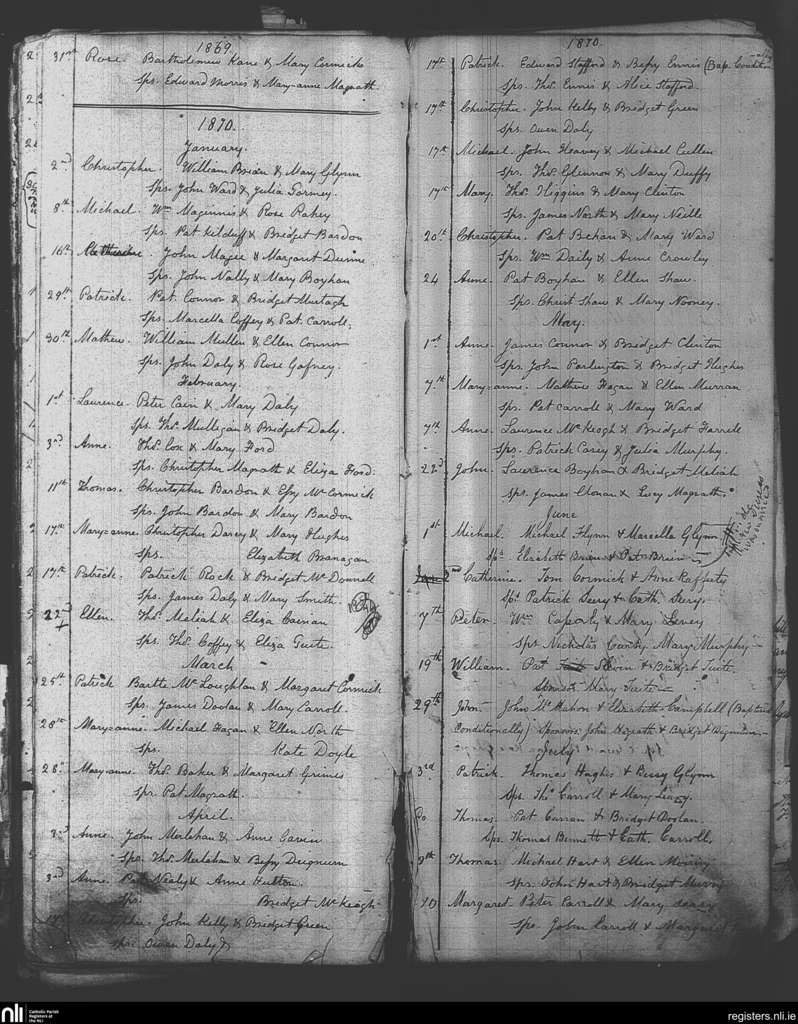 1869
31st Rose Bartholemew Kane & Mary Cormick
Sps. Edward Morris & Mary-anne Magrath
1870.
January.
2nd Christopher William Brien & Mary Glynn
Sps. John Ward & Julia Gormey.
8th Michael. Wm Maginnis & Rose Fahey
Sps. Pat Kilduff & Bridget Bardon
16th Catherine. John Magee & Margaret Dunne
Sps. John Nally & Mary Boyhan
29th Patrick. Pat. Connor & Bridget Murtagh
Sps. Marcella Coffey & Pat. Carroll.
30th Mathew. William Mullen & Ellen Connor
Sps. John Daly & Rose Gafney.
February.
1st Laurence. Peter Cain & Mary Daly
Sps. Thos. Mulligan & Bridget Daly.
3rd Anne. Thos. Cox & Mary Ford
Sps. Christopher Magrath & Eliza Ford.
11th Thomas. Christopher Bardon & Essy McCormick
Sps. John Bardon & Mary Bardon
17th Mary-anne. Christopher Darcy & Mary Hughes
Sps. Elizabeth Branagan
17th Patrick. Patrick Rock & Bridget McDonnell
Sps. James Daly & Mary Smith.
22nd Ellen. Thos. Meliah & Eliza Cainan
Sps. Thos. Coffey & Eliza Tuite.
March
25th Patrick Bartle McLoughlan & Margaret Cormick
Sps. James Doolan & Mary Carroll.
28th Mary-anne. Michael Hagan & Ellen North
Sps. Kate Doyle
28th Mary-anne Thos. Baker & Margaret Grimes
Sps. Pat Magrath.
April.
3rd Anne. John Merlehan & Anne Gavin
Sps. Thos. Merlehan & Bessy Deignum
3rd Anne. Pat Nealy & Anne Hutton.
Sps. Bridget McKeogh
17th Christopher. John Kelly & Bridget Green
Sps. Owen Daly
1870.
17th Patrick. Edward Stafford & Bessy Ennis (Bap. Condit
Sps. Thos. Ennis & Alice Stafford.
17th Christopher. John Kelly & Bridget Green
Sps. Owen Daly
17th Michael. John Heavey & Michael Cullen
Sps. Thos. Glennon & Mary Duffy
17th Mary. Thos. Higgins & Mary Clinton
Sps. James North & Mary Neille
20th Christopher. Pat Behan & Mary Ward
Sps. Wm Daily & Anne Crowley
24 Anne. Pat Boyhan & Ellen Shaw.
Sps. Christ Shaw & Mary Nooney.
May.
1st Anne. James Connor & Bridget Clinton
Sps. John Parlington & Bridget Hughes
7th Mary-anne. Mathew Hagan & Ellen Murran
Sps. Pat Carroll & Mary Ward
7th Anne. Laurence McKeogh & Bridget Farrell
Sps. Patrick Casey & Julia Murphy.
22nd John. Laurence Boyhan & Bridget Meliah
Sps. James Clonan & Lucy Magrath.
June
1st Michael. Michael Flynn & Marcella Glynn
Sps. Elizabeth Brien & Pat Brien
2nd Catherine. Tom Cormick & Anne Rafferty
Sps. Patrick Seery & Cath. Seery.
7th Peter. Wm Caperly & Mary Leney
Sps. Nicholas Mary Murphy
19th William. Pat Slevin & Bridget Tuite.
Sponsor Mary Tuite
29th John John McMahon & Elizabeth Campbell (Baptized
Conditionally) Sponsors John Magrath & Bridget
July
3rd Patrick. Thomas Hughs & Bessy Glynn
Sps. Thos. Carroll & Mary Leary.
Do. Thomas. Pat. Curran & Bridget Doolan.
Sps. Thomas Bennett & Cath. Carroll.
9th Thomas Michael Hart & Ellen Murray
Sps. John Hart & Bridget Murry
10 Margaret Peter Carroll & Mary
Sps. John Carroll & Margaret
nli
Catholic Parish
Registers at
the NLI
registers.nli.ie